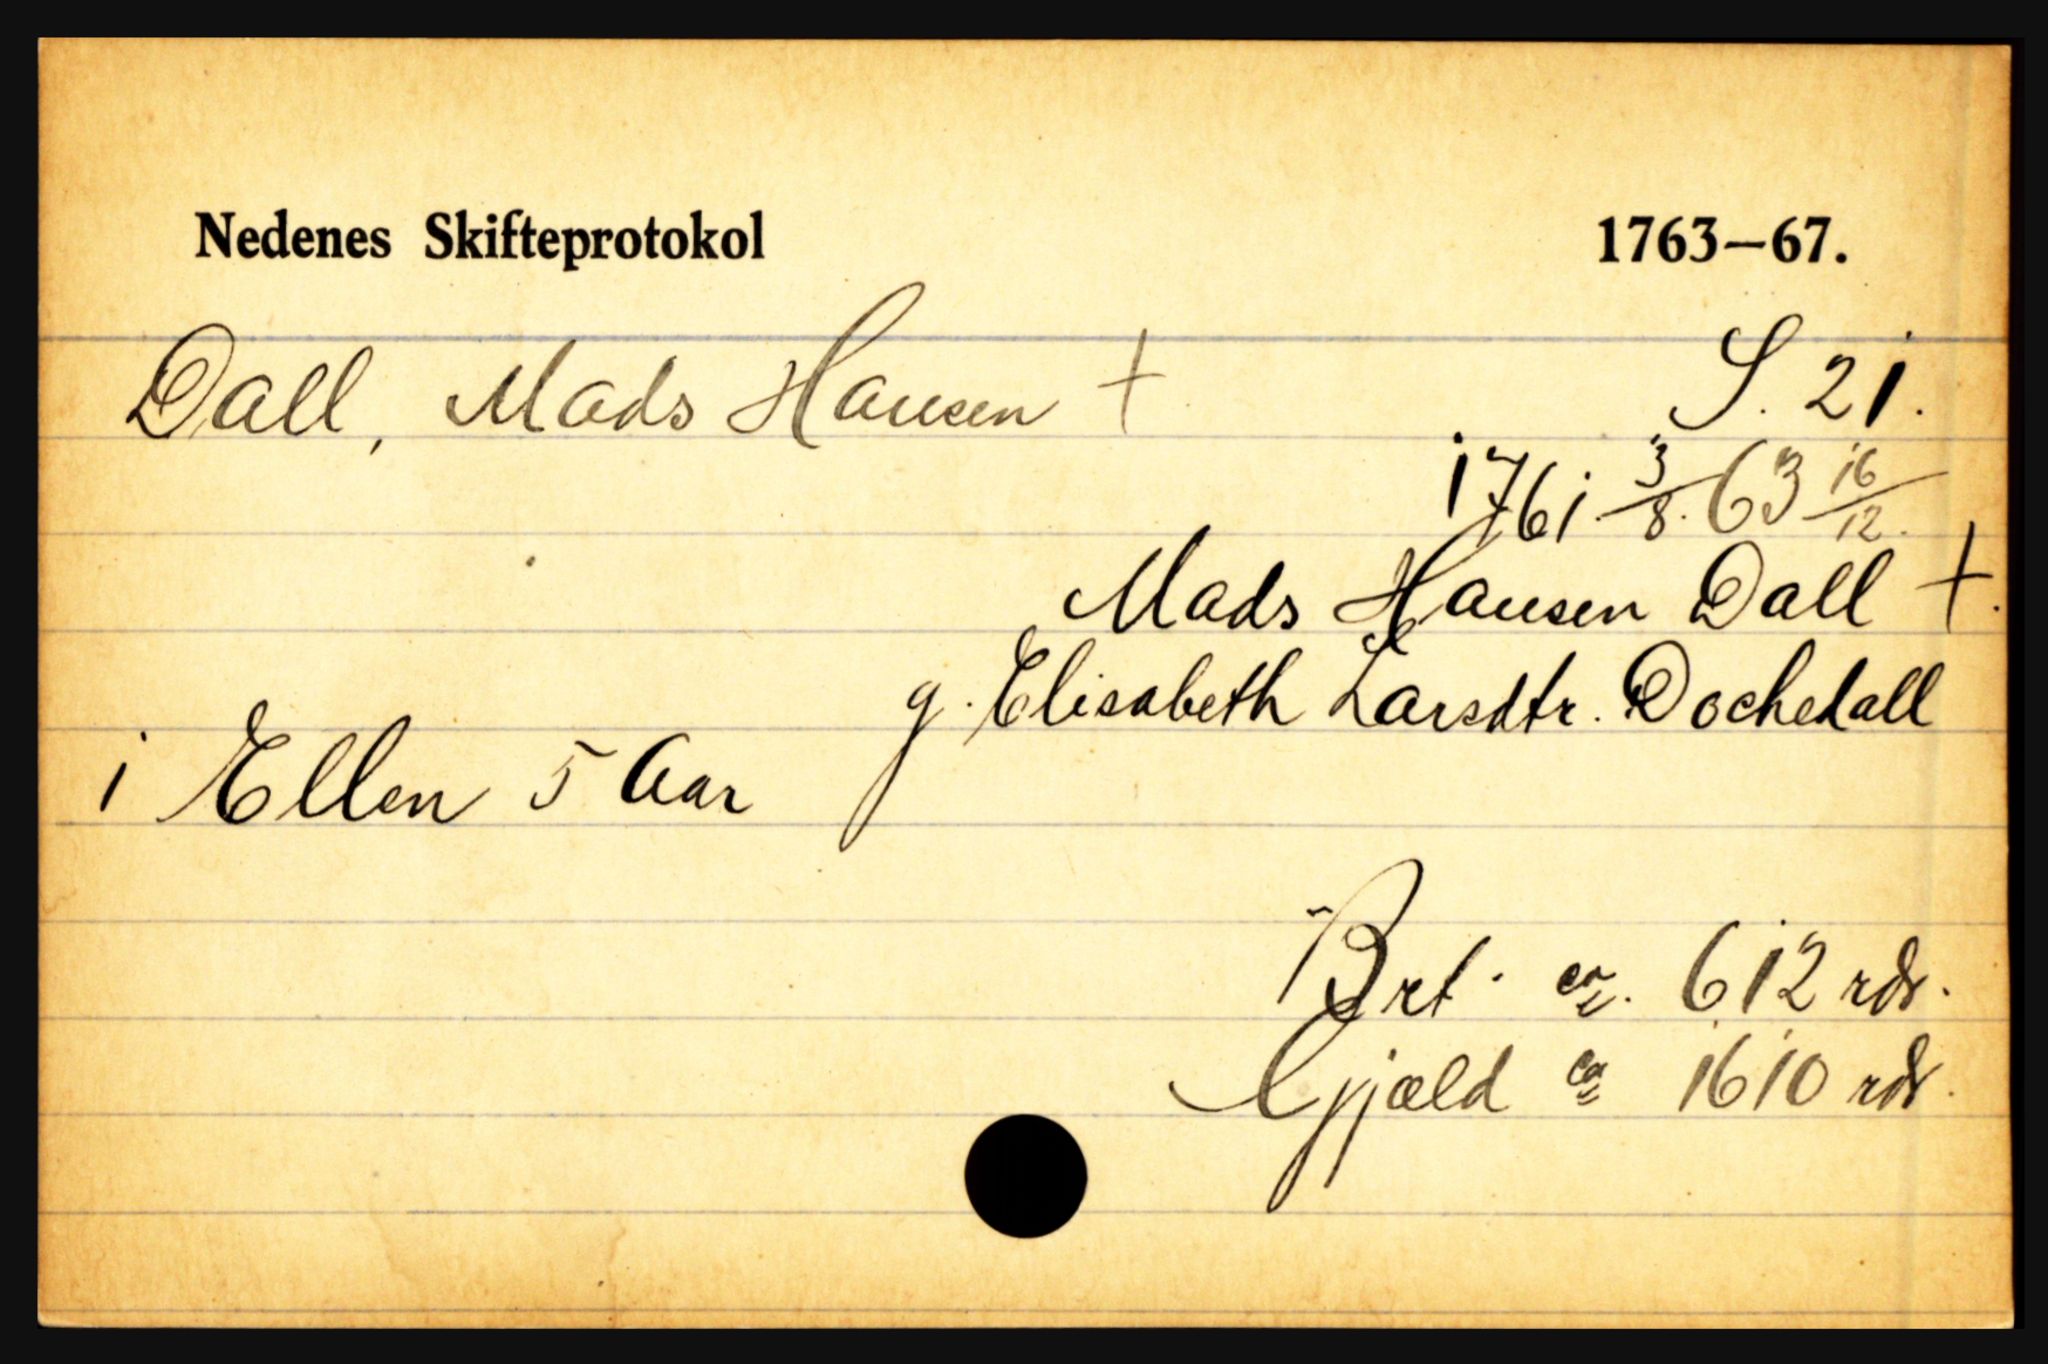 Nedenes Skifteprotokol 1763—67.
Dall, Mads Hansen † S. 21.
1761. 3/8. 63 16/12.
Mads Hansen Dall †.
g. Elisabeth Larsdtr. Dochedall
1 Ellen 5 Aar
Brt. ca. 612 rdr.
Gjæld ca 1610 rdr.